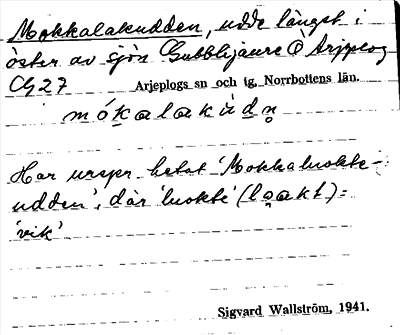 Mokkalakudden, udde längst i
öster av sjön Gubblijaure Ö Arjeplog
Arjeplogs sn och tg, Norrbottens län.
mókalakùdn̥
Har urspr. hetat 'Mokkaluokte-
udden', där 'luokte' (lo̯akt) =
'vik'
Sigvard Wallström, 1941.